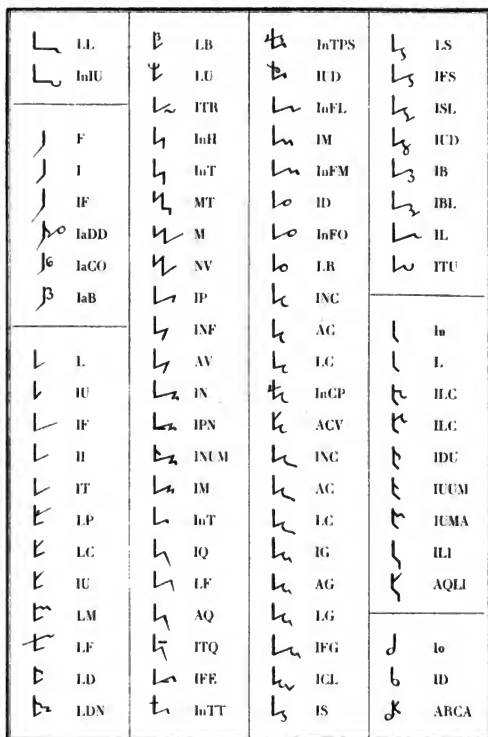 LL
InIU
F
I
IF
IaDD
IaCO
IaB
L
IU
IF
II
IT
LP
LC
IU
LM
LF
LD
LDN
LB
LU
ITR
InH
InT
MT
M
NV
IP
INF
AV
IN
IPN
INUM
IM
InT
IQ
LF
AQ
ITQ
IFE
InTT
InTPS
IUD
InFL
IM
InFM
ID
InFO
LR
INC
AC
LC
InCP
ACV
INC
AC
LC
IG
AG
LG
IFG
ICL
IS
LS
IFS
ISL
IUD
IB
IBL
IL
ITU
Iu
L
ILC
ILC
IDU
IUUM
IUMA
ILI
AQLI
Io
ID
ARCA